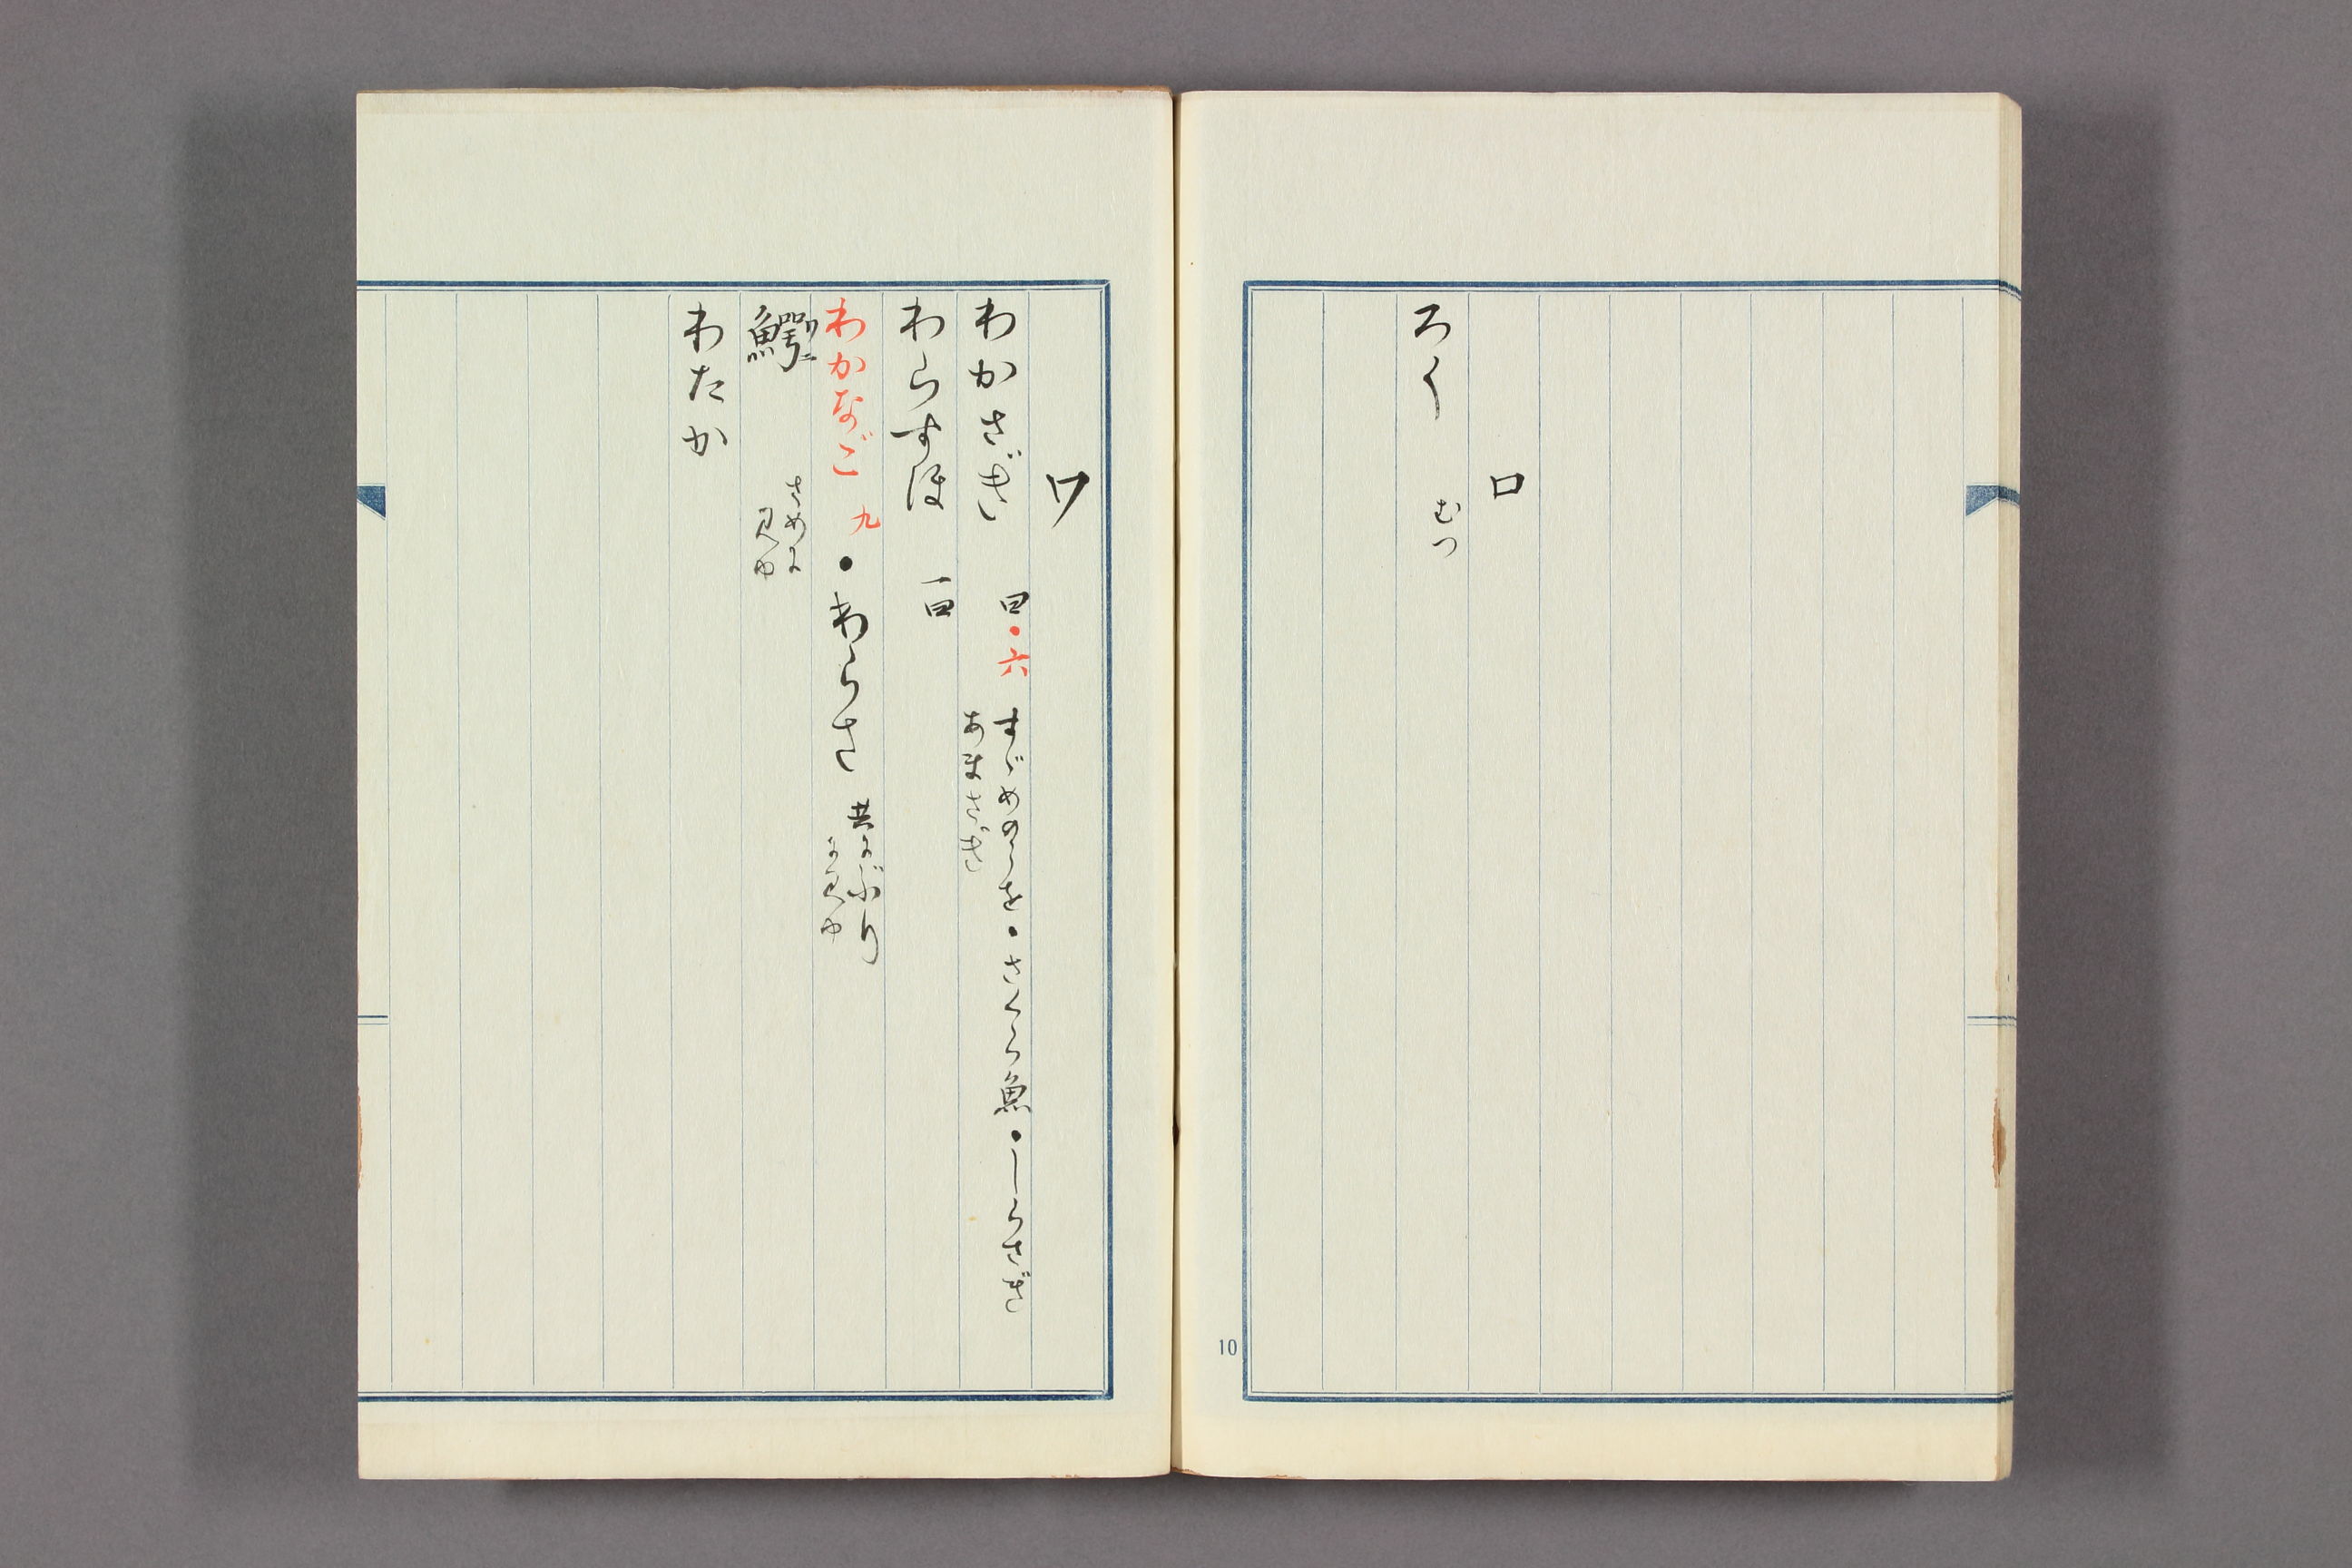 ロ
ろく むつ
10
ワ
わかさぎ 四・六 すゞめのうを・さくら魚・しらさぎ
あまさぎ
わらすほ 一四
わかなご 九・わらさ 共にぶり
に見ゆ
鰐 ワニ さめに
見ゆ
わたか